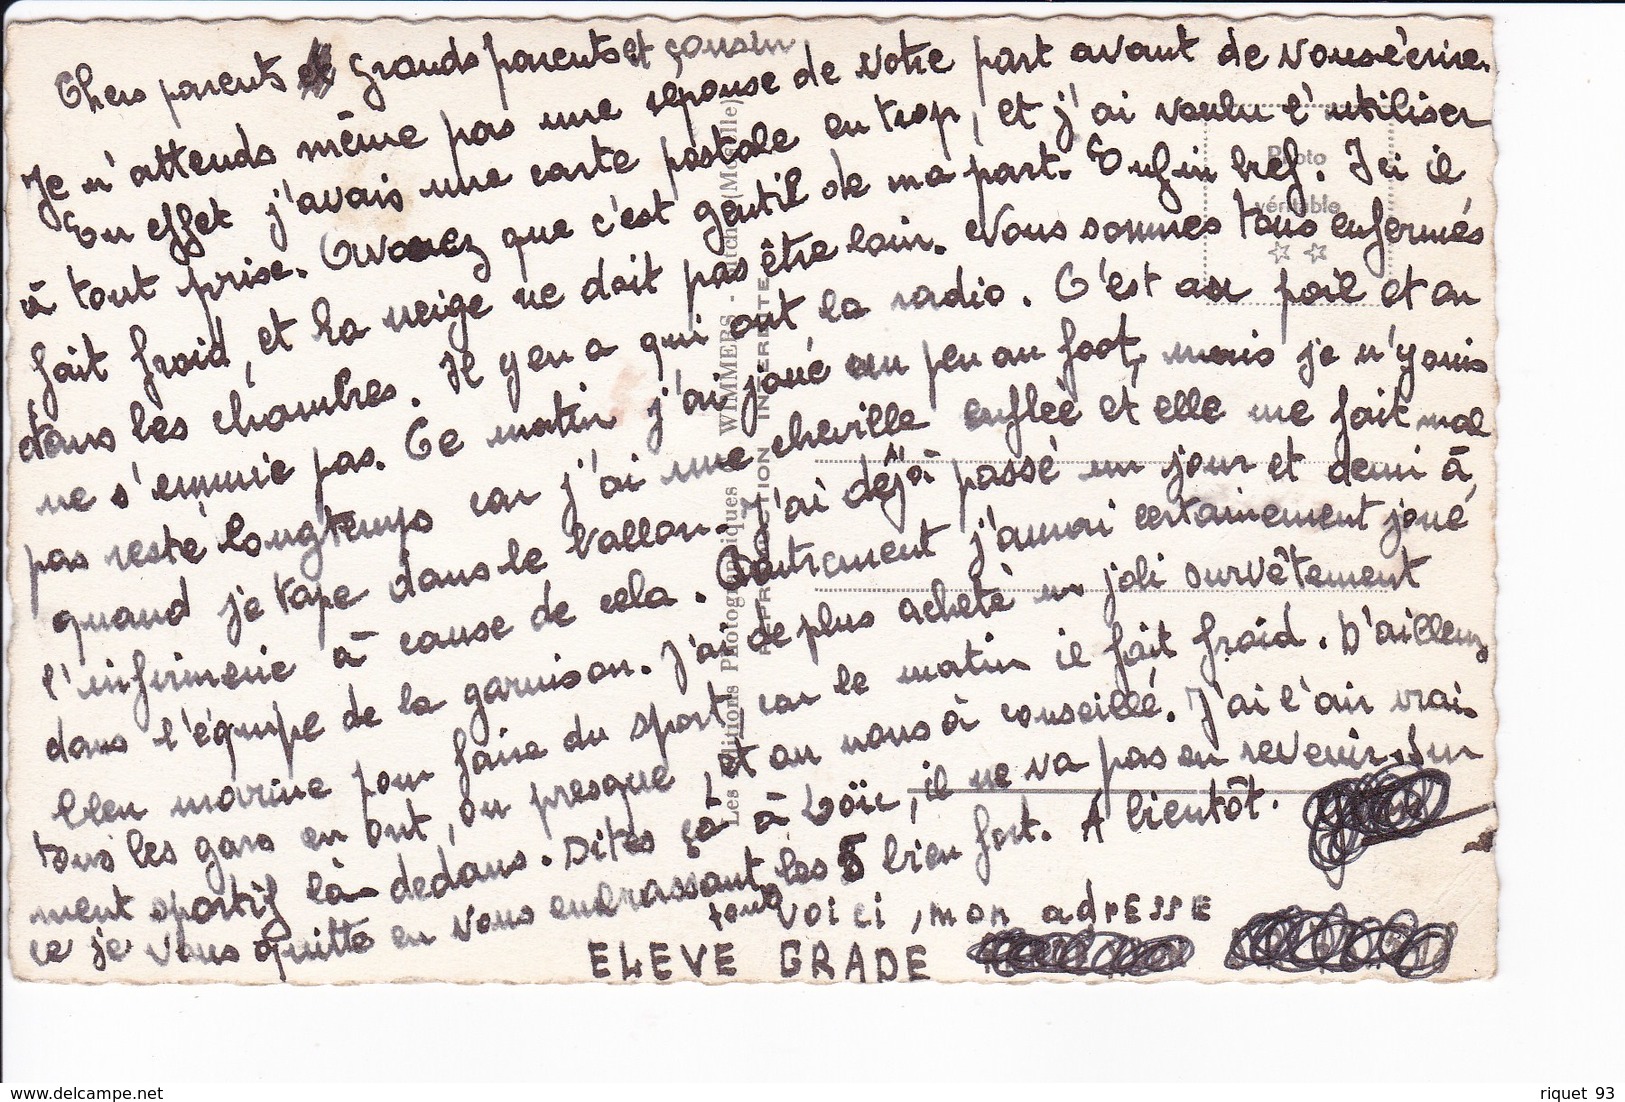 Chers parents et grands parents et cousin,
Je n'attends même pas une réponse de votre part avant de vous écrire.
En effet j'avais une carte postale en trop, et j'ai voulu l'utiliser
à tout prise. Avouez que c'est gentil de ma part. Enfin bref. Ici il
fait froid, et la neige ne doit pas être loin. Nous sommes tous enfermés
dans les chambres. Il y en a qui ont la radio. C'est au poil et on
ne s'ennuie pas. Ce matin j'ai joué un peu au foot, mais je n'y suis
pas resté longtemps car j'ai une cheville enflée et elle me fait mal
quand je tape dans le ballon. J'ai déjà passé un jour et demi à
l'infirmerie à cause de cela. Autrement j'aurai certainement joué
dans l'équipe de la garnison. J'ai de plus acheté un joli survêtement
bleu marine pour faire du sport, car le matin il fait froid. D'ailleurs
tous les gars en ont, ou presque, et on nous à conseillé. J'ai l'air vrai-
ment sportif là-dedans. Dites ça à Loïc, il ne va pas en revenir. Sur
ce je vous quitte en vous embrassant tous les 5 bien fort. A bientôt.
voici, mon adresse
ELEVE GRADE
Les Editions Photographiques WIMMERS - Bitche (Moselle)
REPRODUCTION INTERDITE
Photo
véritable
riquet 93